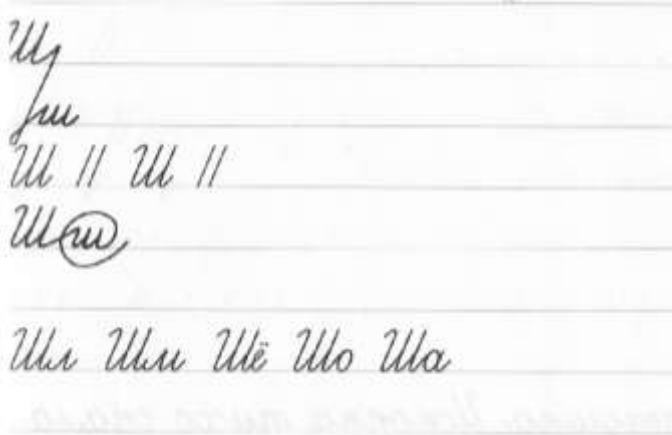 Щ
ш
Ш // Ш //
Шш
Шл Шм Шё Шо Ша